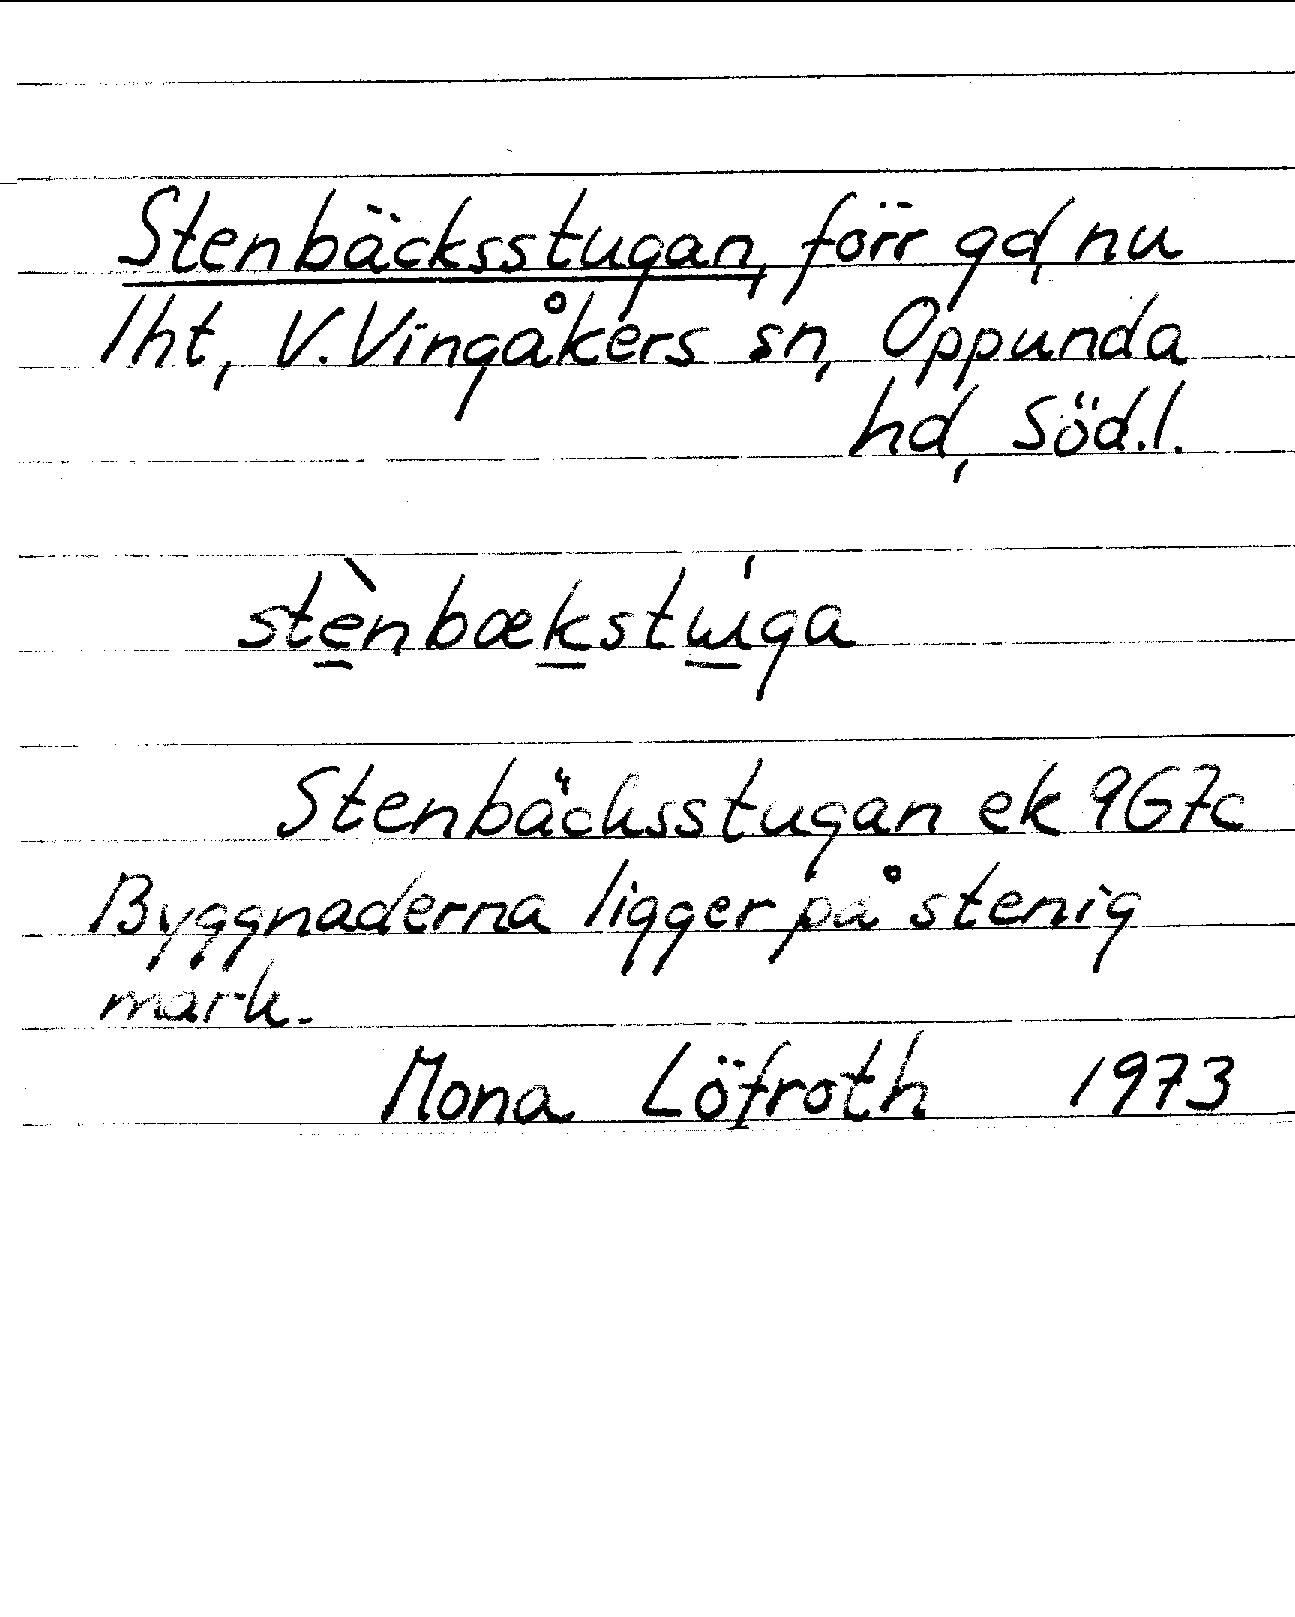 Stenbäcksstugan, förr gd, nu
lht, V. Vingåkers sn, Oppunda
hd, Söd.l.
stènbækstɯ́ga
Stenbäcksstugan ek 9G7c
Byggnaderna ligger på stenig
mark.
Mona Löfroth 1973